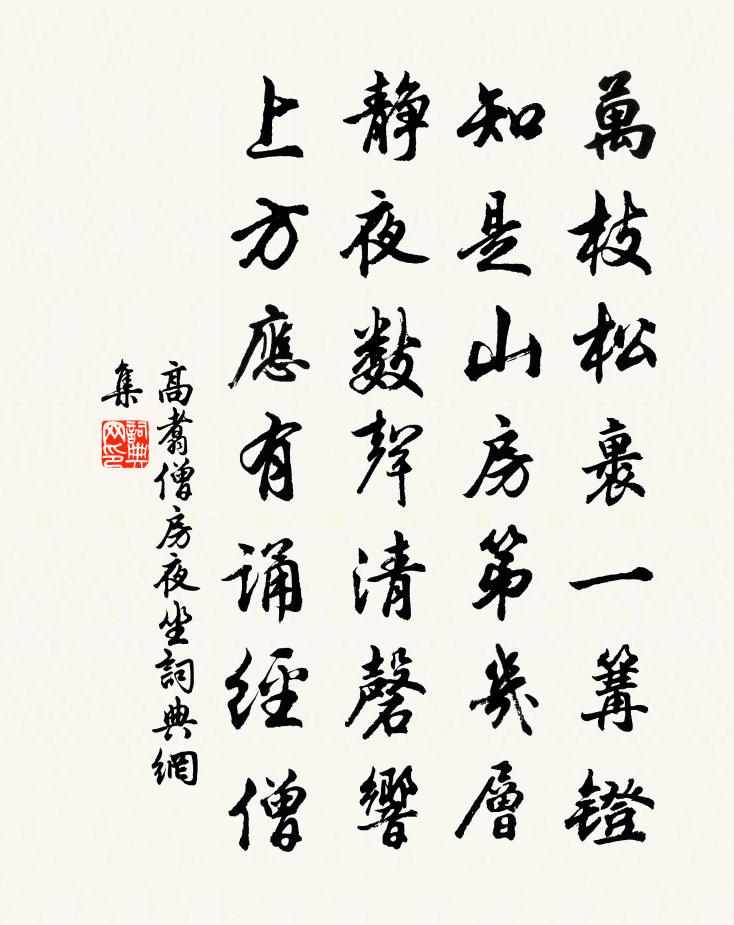 萬枝松裏一篝鐙
知是山房第幾層
靜夜數聲清磬響
上方應有誦經僧
高翥僧房夜坐詞典網
集
詞典
网印